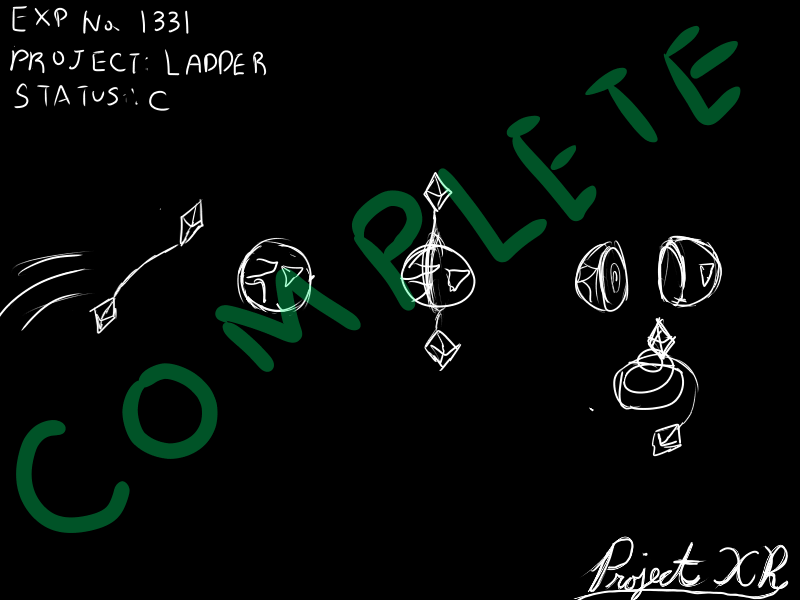 EXP No. 1331
PROJECT: LADDER
STATUS: C
COMPLETE
Project XR